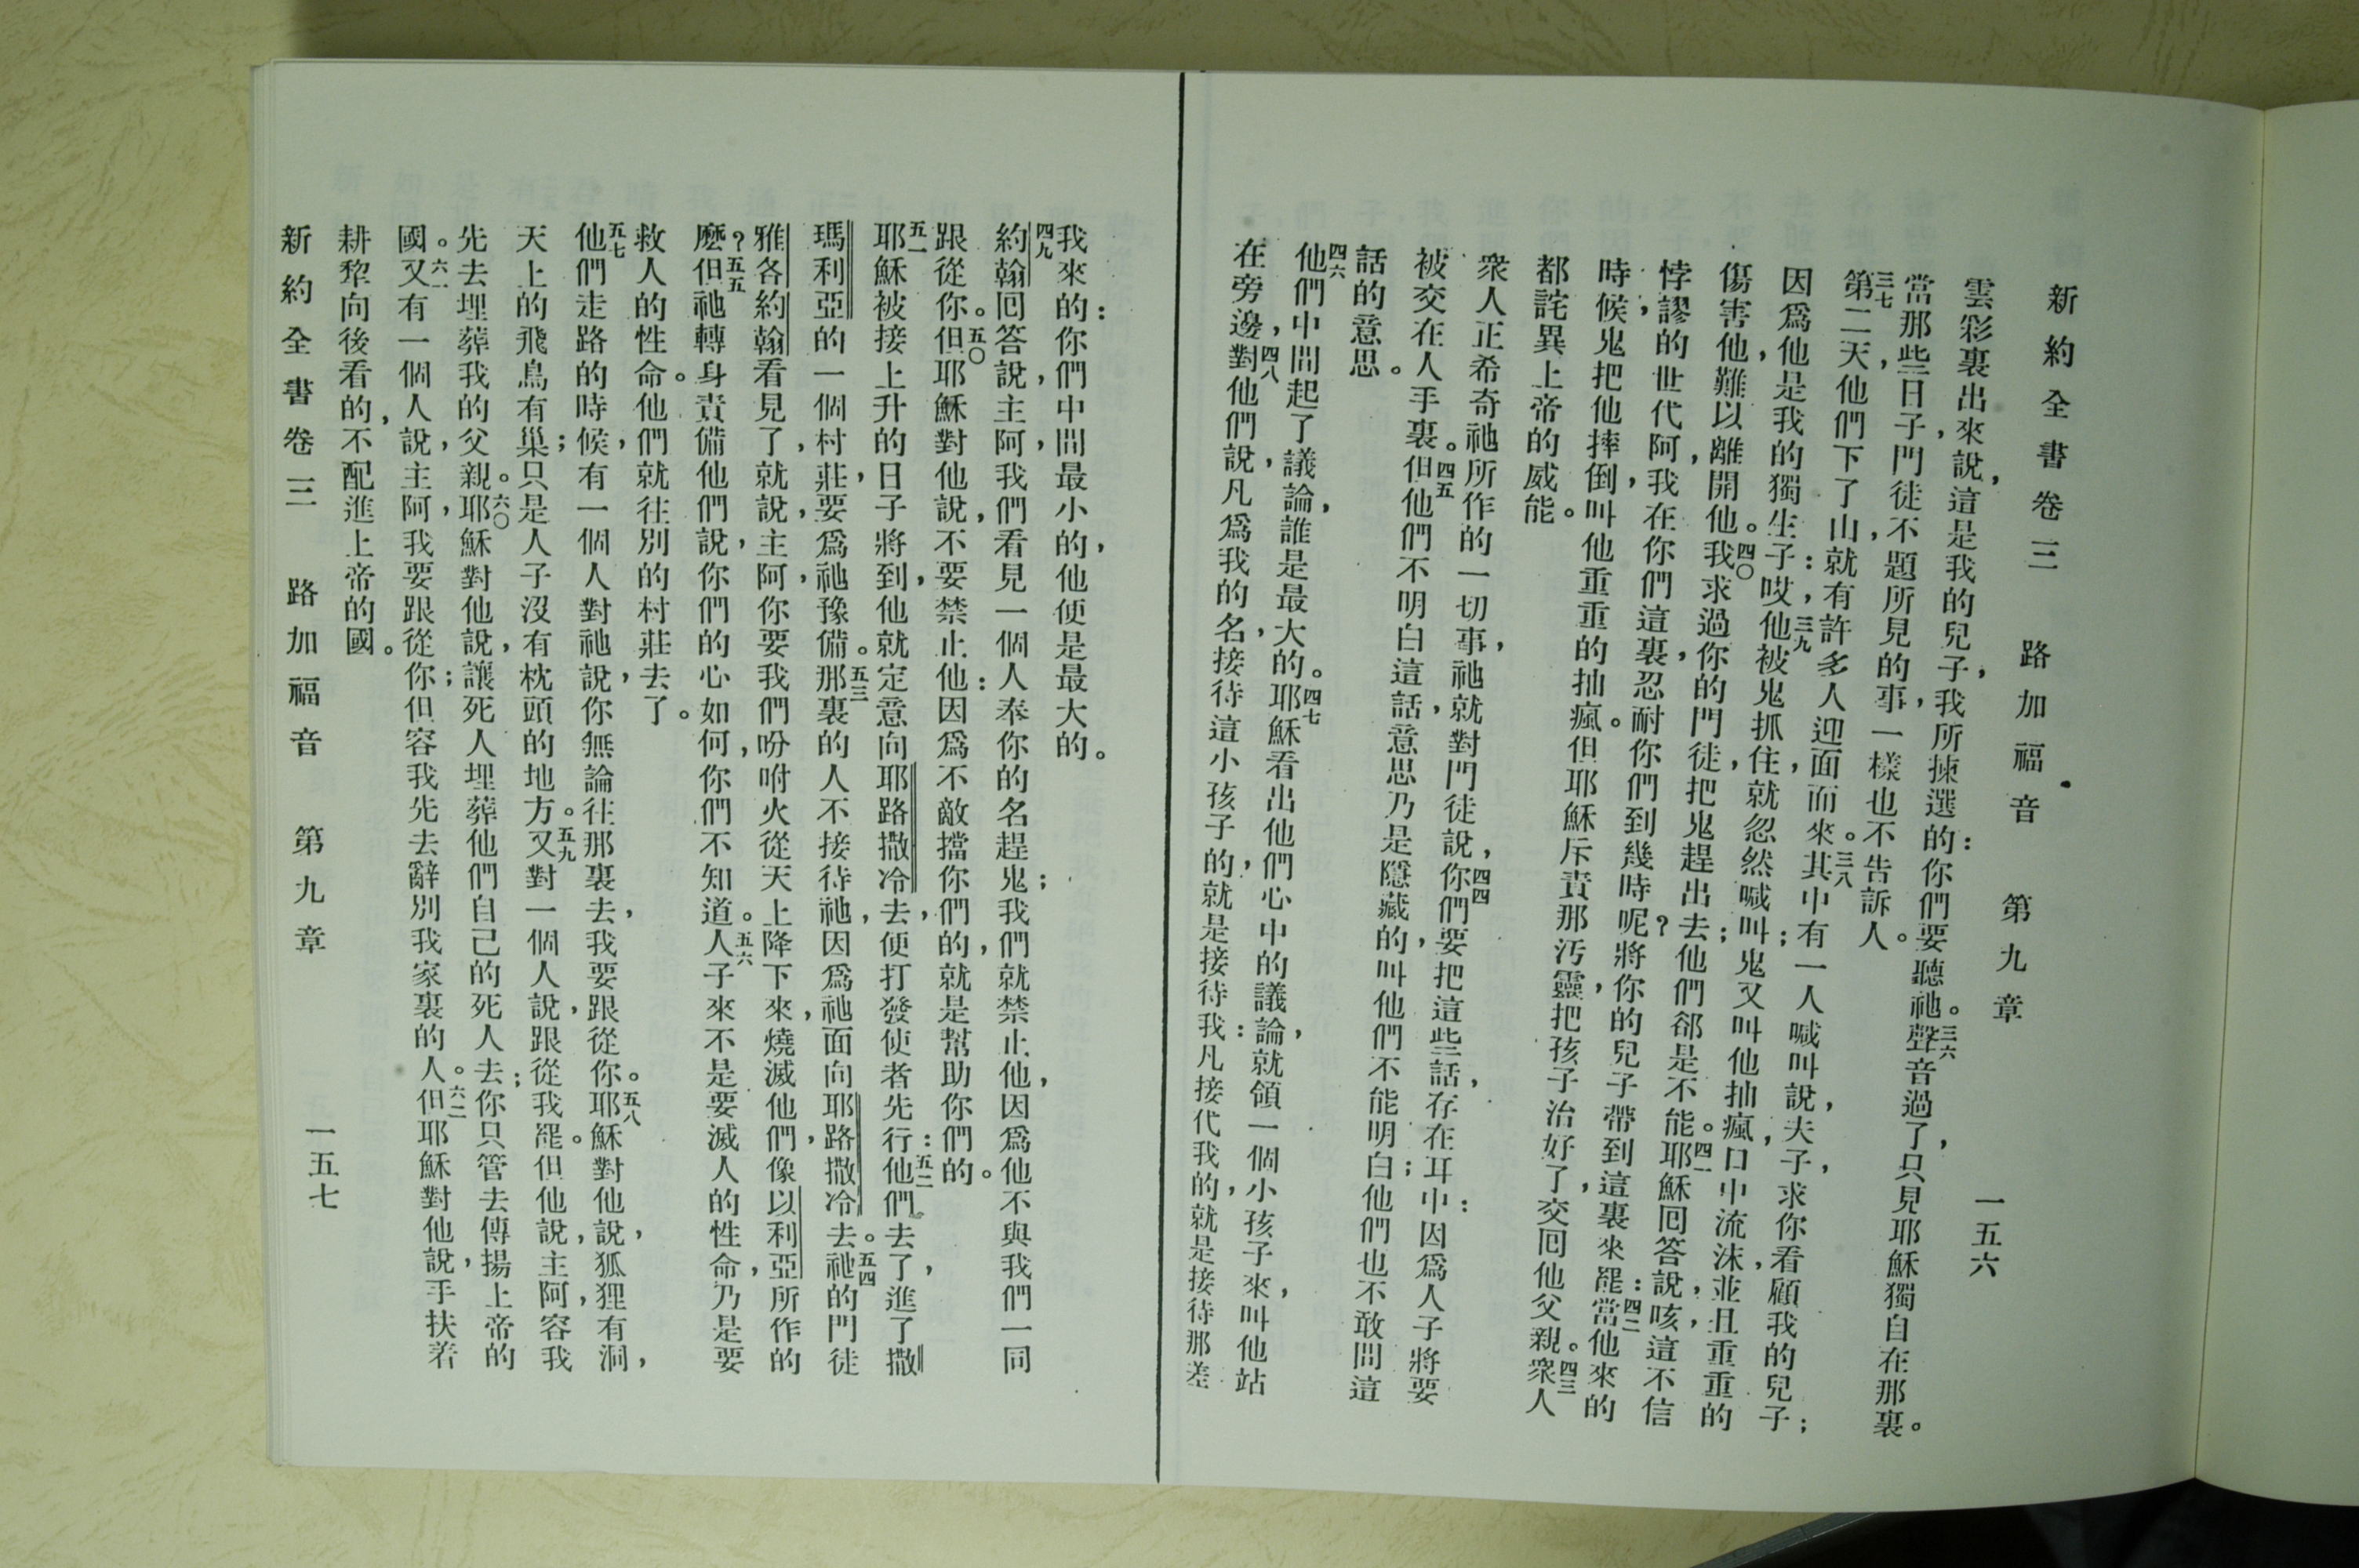 新約全書卷三 路加福音 第九章 一五六
雲彩裏出來,說,這是我的兒子,我所揀選的:你們要聽祂。三六聲音過了,只見耶穌獨自在那裏。
當那些日子,門徒不題所見的事,一樣也不告訴人。
三七第二天他們下了山,就有許多人,迎面而來。三八其中有一人喊叫說,夫子,求你看顧我的兒子;
因爲他是我的獨生子:哎,三九他被鬼抓住,就忽然喊叫;鬼又叫他抽瘋,口中流沫,並且重重的
傷害他,難以離開他。四〇我求過你的門徒,把鬼趕出去;他們郤是不能。四一耶穌回答說,咳,這不信
悖謬的世代阿,我在你們這裏,忍耐你們到幾時呢?將你的兒子帶到這裏來罷:四二當他來的
時候,鬼把他摔倒,叫他重重的抽瘋。但耶穌斥責那汚靈,把孩子治好了,交回他父親。四三衆人
都詫異上帝的威能。
衆人正希奇祂所作的一切事,祂就對門徒說,四四你們要把這些話,存在耳中:因爲人子將要
被交在人手裏。四五但他們不明白這話,意思乃是隱藏的,叫他們不能明白;他們也不敢問這
話的意思。
四六他們中間起了議論,誰是最大的。四七耶穌看出他們心中的議論,就領一個小孩子來,叫他站
在旁邊,四八對他們說,凡爲我的名,接待這小孩子的,就是接待我:凡接代我的,就是接待那差
我來的:你們中間最小的,他便是最大的。
四九約翰回答說,主阿,我們看見一個人奉你的名趕鬼;我們就禁止他,因爲他不與我們一同
跟從你。五〇但耶穌對他說,不要禁止他:因爲不敵擋你們的,就是幫助你們的。
五一耶穌被接上升的日子將到,他就定意向耶路撒冷去,便打發使者先行:五二他們去了,進了撒
瑪利亞的一個村莊,要爲祂豫備。五三那裏的人不接待祂,因爲祂面向耶路撒冷去。五四祂的門徒
雅各約翰看見了,就說,主阿,你要我們吩咐火從天上降下來,燒滅他們,像以利亞所作的
麼?五五但祂轉身責備他們,說,你們的心如何,你們不知道。五六人子來不是要滅人的性命,乃是要
救人的性命。他們就往別的村莊去了。
五七他們走路的時候,有一個人對祂說,你無論往那裏去,我要跟從你。五八耶穌對他說,狐狸有洞,
天上的飛鳥有巢;只是人子沒有枕頭的地方。五九又對一個人說,跟從我罷。但他說,主阿,容我
先去埋葬我的父親。六〇耶穌對他說,讓死人埋葬他們自己的死人;去你只管去傳揚上帝的
國。六一又有一個人說,主阿,我要跟從你;但容我先去辭別我家裏的人。六二但耶穌對他說,手扶着
耕犂向後看的,不配進上帝的國。
新約全書卷三 路加福音 第九章 一五七